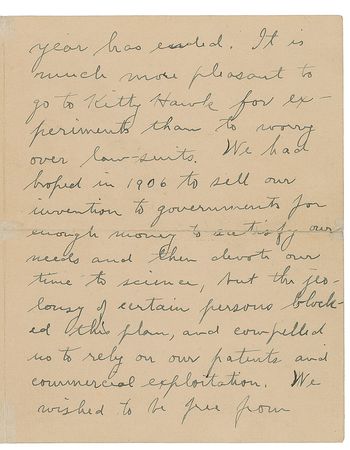 year has ended. It is
much more pleasant to
go to Kitty Hawk for ex-
periments than to worry
over law-suits. We had
hoped in 1906 to sell our
invention to governments for
enough money to satisfy our
needs and then devote our
time to science, but the jea-
lousy of certain persons block-
ed this plan, and compelled
us to rely on our patents and
commercial exploitation. We
wished to be free from